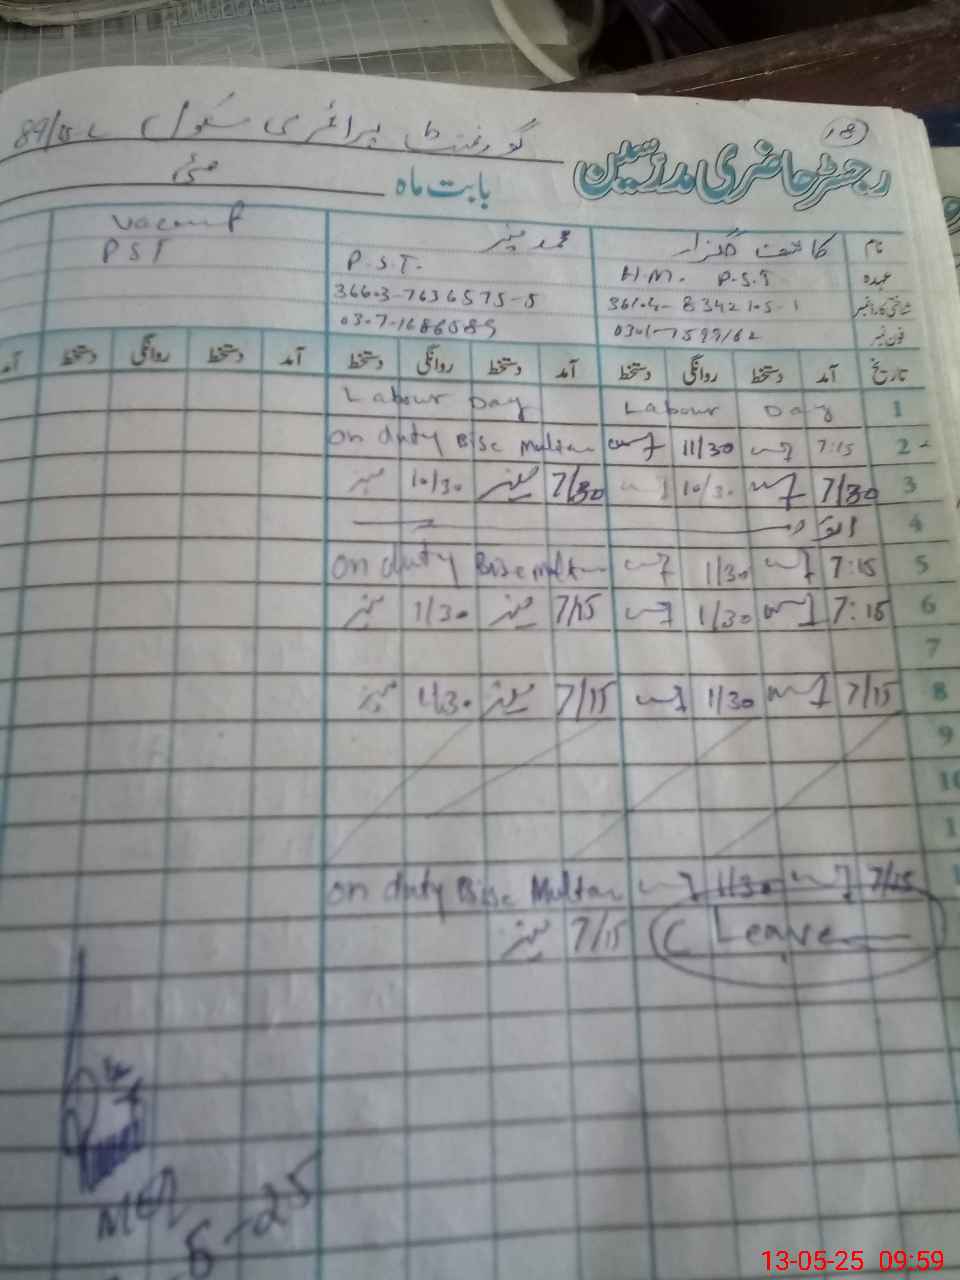 18
رجسٹر حاضری مدرسین گورنمنٹ پرائمری سکول 89/15-L
بابت ماہ مئی
نام محمد منیر Vacant
عہدہ H.M. P.S.T P.S.T. PST
شناختی کارڈ نمبر 36603-7636575-5
فون نمبر
تاریخ آمد دستخط روانگی دستخط آمد دستخط روانگی دستخط آمد دستخط روانگی دستخط آمد
1 Labour Day Labour Day
2 7:15 11/30 on duty Bise Multan
3 7/30 10/30 7/30 منیر 10/30 منیر
4 اتوار
5 7:15 1/30 on duty Bise Multan
6 7:15 1/30 7/15 منیر 1/30 منیر
7
8 7/15 1/30 7/15 منیر 1/30 منیر
9
10
1
1 7/15 1/30 on duty Bise Multan
C Leave 7/15 منیر
13-05-25 09:59